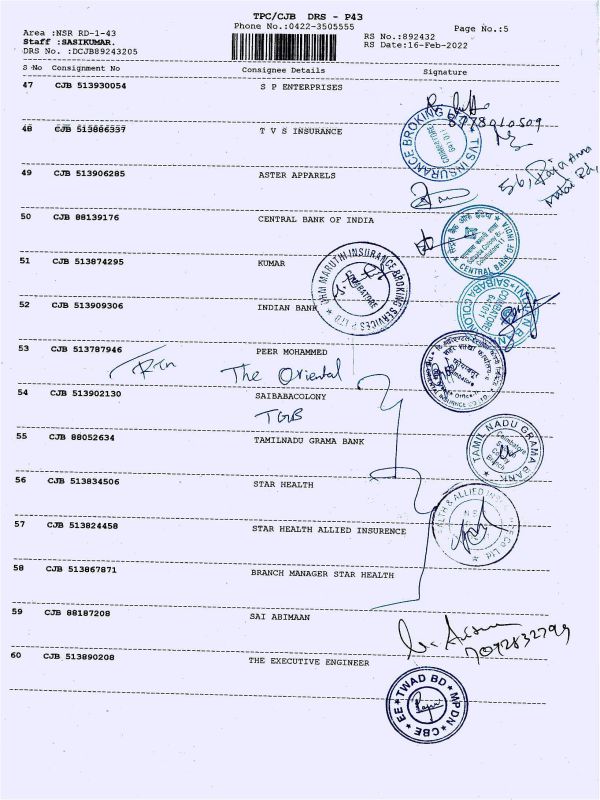 TPC/CJB DRS - P43
Phone No.:0422-3505555
Page No.:5
Area :NSR RD-1-43
RS No.:892432
Staff :SASIKUMAR.
RS Date:16-Feb-2022
DRS No. :DCJB89243205
S No Consignment No Consignee Details Signature
47 CJB 513930054 S P ENTERPRISES
48 CJB 513886337 T V S INSURANCE
TVS INSURANCE BROKING
COIMBATORE
641 011
49 CJB 513906285 ASTER APPARELS
56, Raja Anna
50 CJB 88139176 CENTRAL BANK OF INDIA
CENTRAL BANK OF
51 CJB 513874295 KUMAR
MARUTHI INSURANCE BROKING SERVICES P LTD
COIMBATORE
52 CJB 513909306 INDIAN BANK
SAIBABA COLONY
COIMBATORE
641 011
53 CJB 513787946 PEER MOHAMMED
RTn The Oriental
54 CJB 513902130 SAIBABACOLONY
TGB
55 CJB 88052634 TAMILNADU GRAMA BANK
TAMIL NADU GRAMA BANK
Coimbatore
Branch
56 CJB 513834506 STAR HEALTH
57 CJB 513824458 STAR HEALTH ALLIED INSURENCE
HEALTH & ALLIED INS Co Ltd
58 CJB 513867871 BRANCH MANAGER STAR HEALTH
59 CJB 88187208 SAI ABIMAAN
7092832799
60 CJB 513890208 THE EXECUTIVE ENGINEER
EE ★ TWAD BD ★ MPDN ★ CBE ★